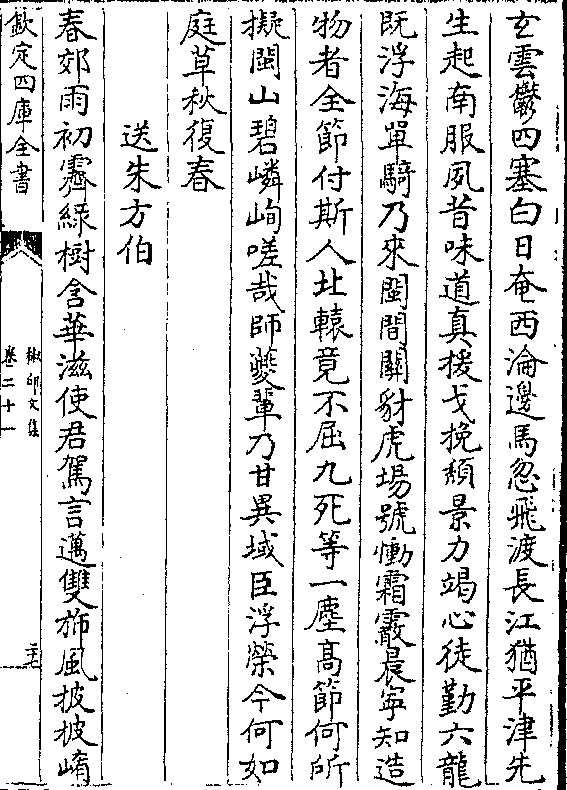 玄雲鬱四塞白日奄西淪邊馬忽飛渡長江猶平津先
生起南服夙昔味道真援戈挽頹景力竭心徒勤六龍
既浮海單騎乃來閩間關豺虎場號慟霜霰晨寧知造
物者全節付斯人北轅竟不屈九死等一塵高節何所
擬閩山碧嶙峋嗟哉師夔輩乃甘異域臣浮榮今何如
庭草秋復春
送朱方伯
春郊雨初霽綠樹含華滋使君駕言邁雙斾風披披崤
欽定四庫全書
椒邱文集
卷二十一